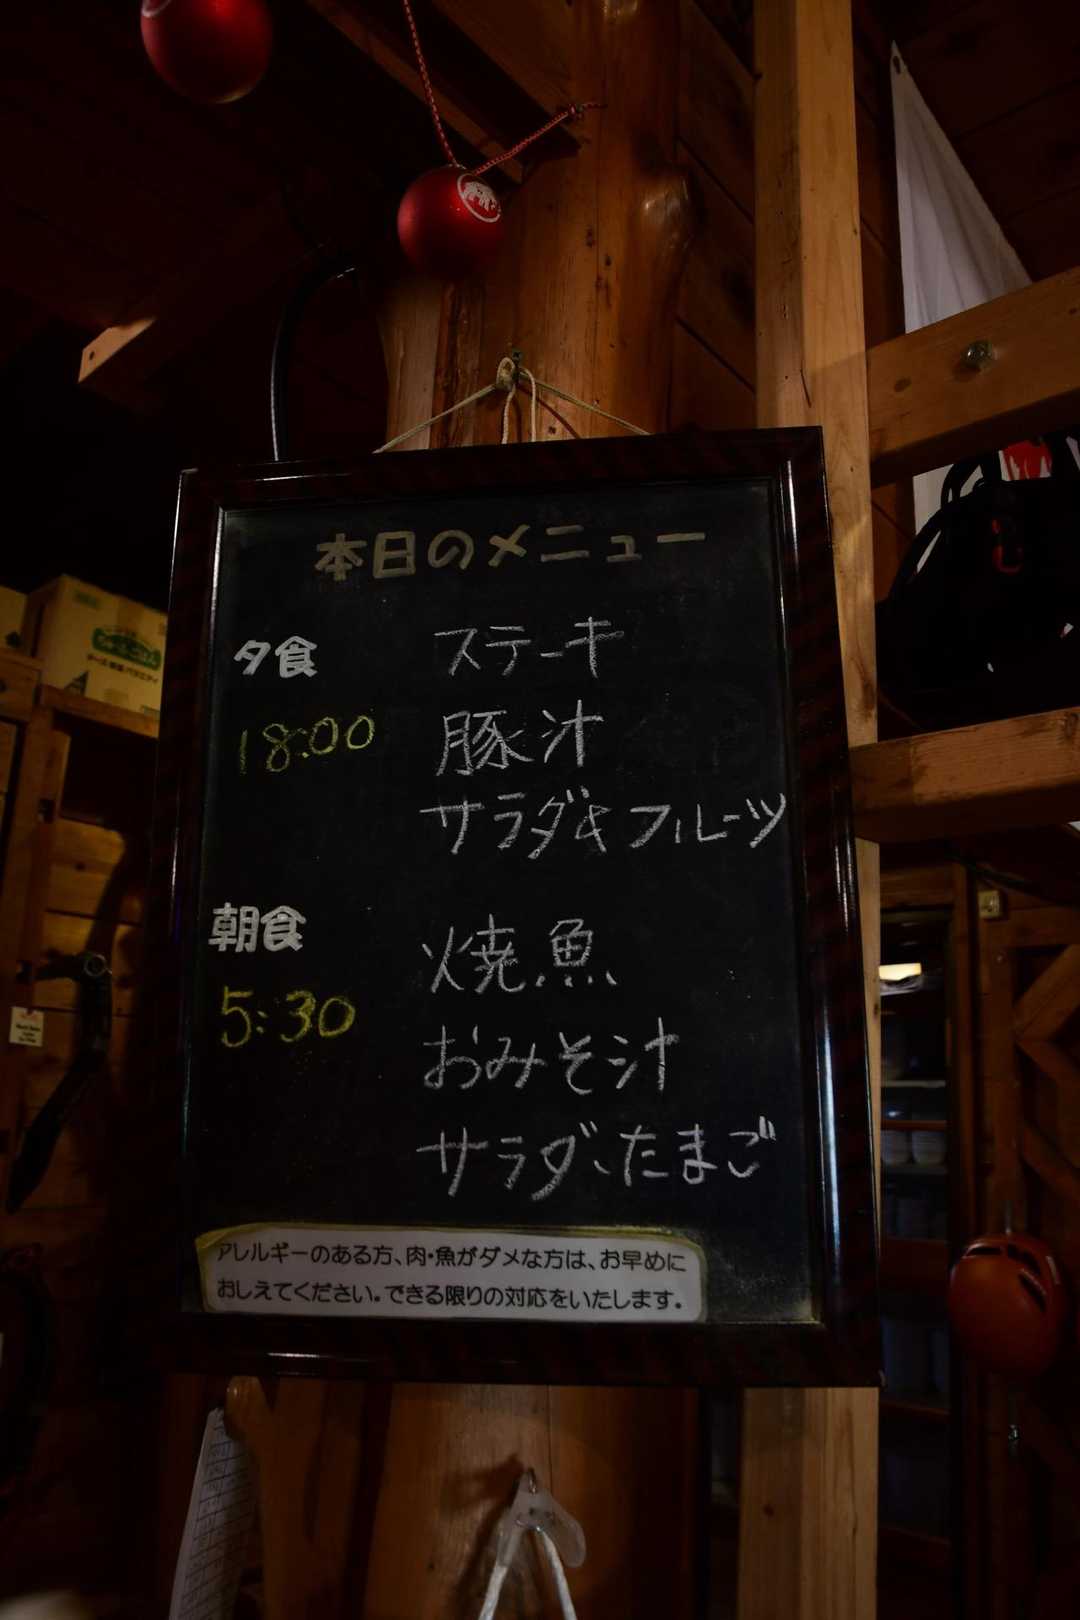 本日のメニュー
夕食
ステーキ
18:00
豚汁
サラダ＆フルーツ
朝食
焼魚
5:30
おみそ汁
サラダ、たまご
アレルギーのある方、肉・魚がダメな方は、お早めに
おしえてください。できる限りの対応をいたします。